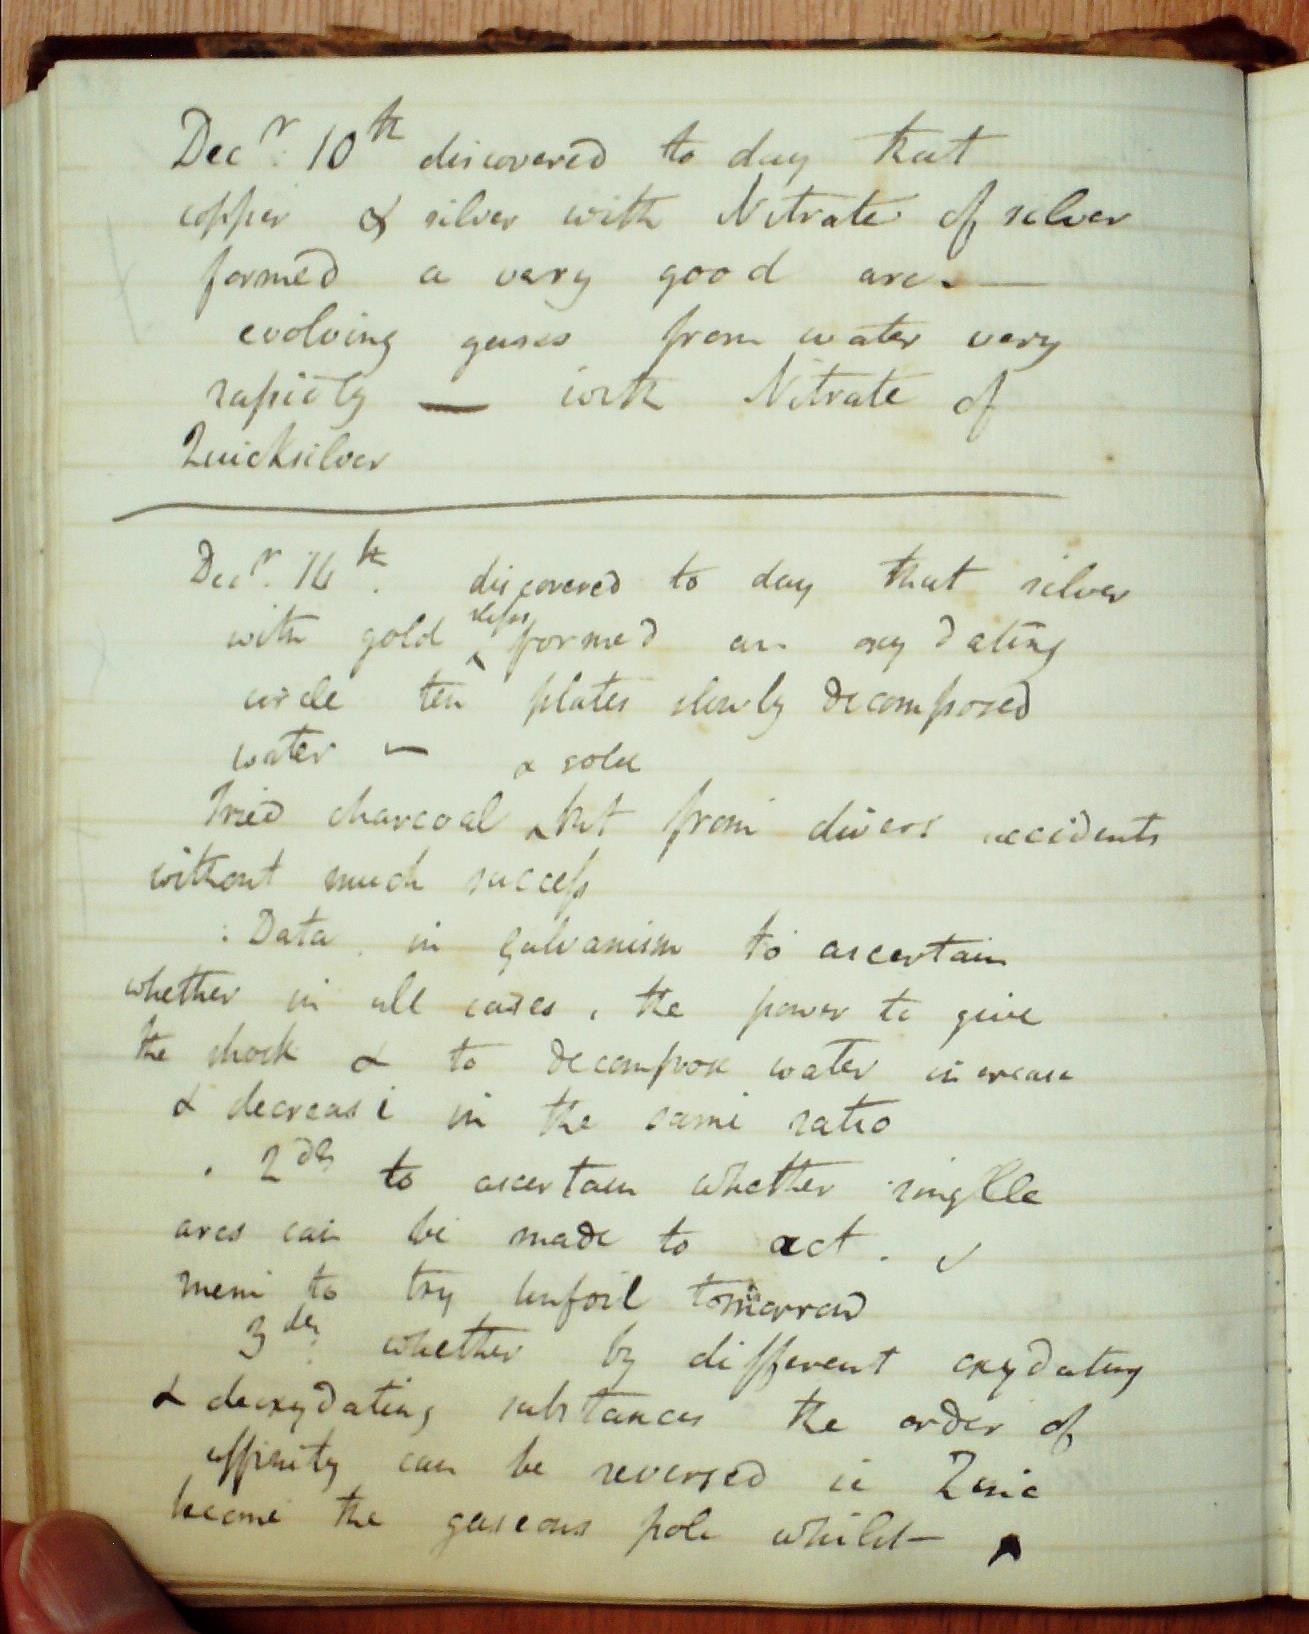 Decr. 10th discovered to day that
copper & silver with Nitrate of silver
formed a very good arc. —
evolving gases from water very
rapidly — with Nitrate of
Quicksilver
Decr. 14th. discovered to day that silver
with gold formed an oxydating
circle ten plates slowly decomposed
water —
Tried charcoal & but from divers accidents
without much success
: Data in galvanism to ascertain
whether in all cases, the power to give
the shock & to decompose water increase
& decrease in the same ratio
. 2dly to ascertain whether single
arcs can be made to act.
mem to try tinfoil tomorrow
3dly. whether by different oxydating
& deoxydating substances the order of
affinity can be reversed ie Zinc
become the gaseous pole whilst